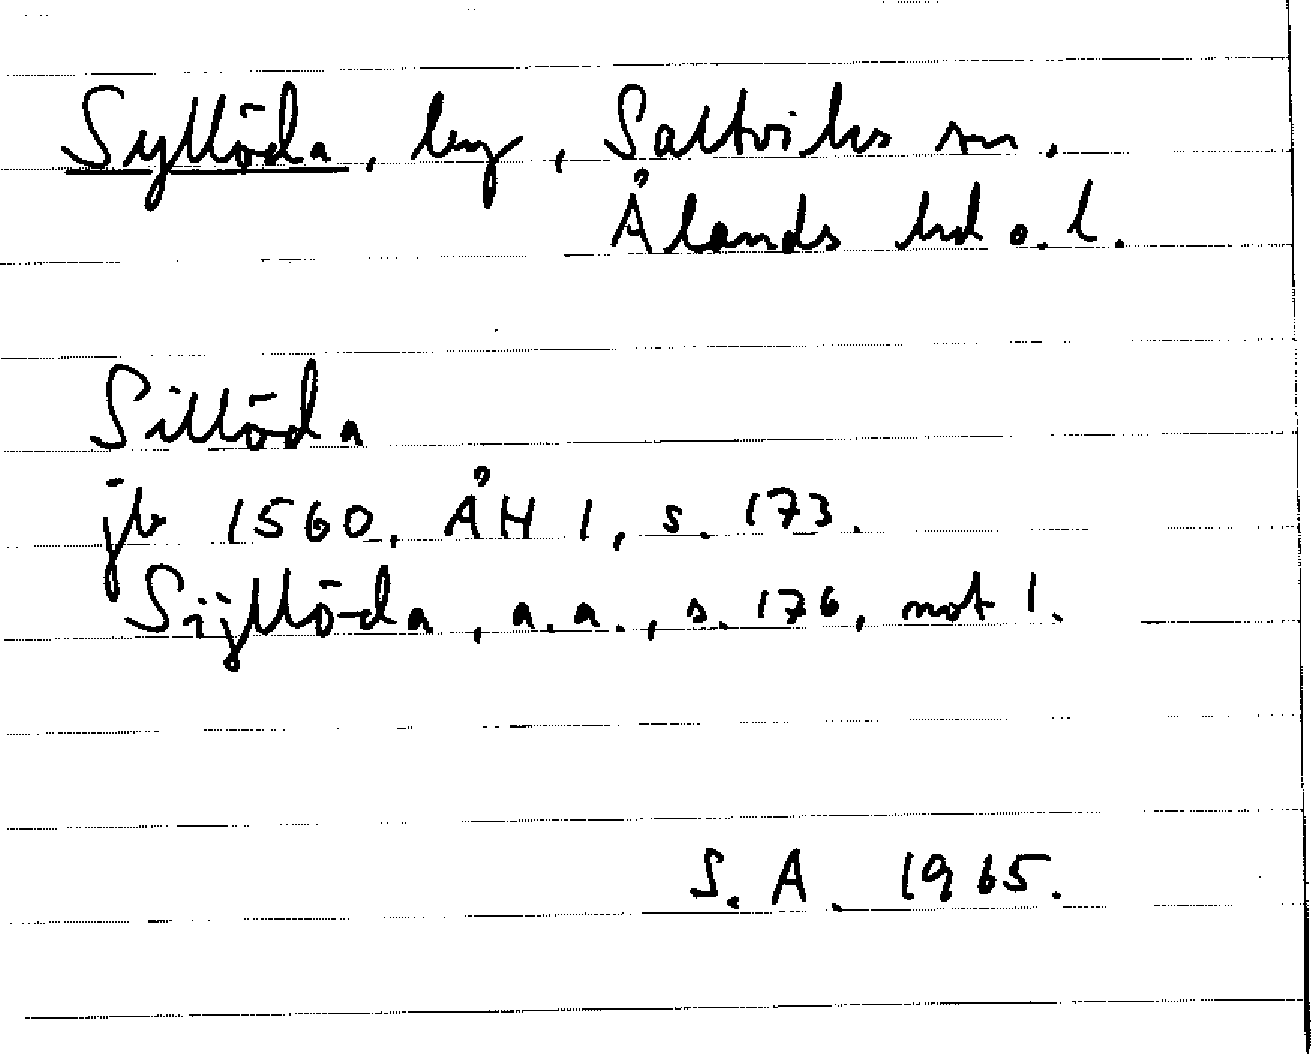 Syllöda, by, Saltviks sn.
Ålands hd o. l.
Sillöda
jb 1560, ÅH 1, s. 173.
Sijllöda, a.a., s. 176, not 1.
S. A. 1965.